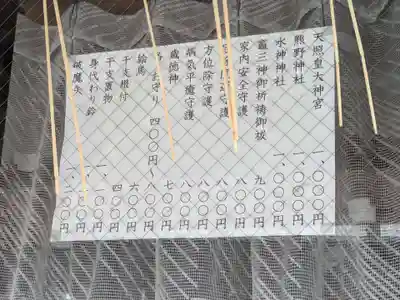 天照皇大神宮 一、〇〇〇円
熊野神社 一、〇〇〇円
水神神社 一、〇〇〇円
竈三神御祈祷御祓 九〇〇円
家内安全守護 八〇〇円
守護 八〇〇円
方位除守護 八〇〇円
病気平癒守護 八〇〇円
歳徳神 七〇〇円
お守り 四〇〇円〜 八〇〇円
絵馬 六〇〇円
干支根付 四〇〇円
干支置物
身代わり鈴
破魔矢